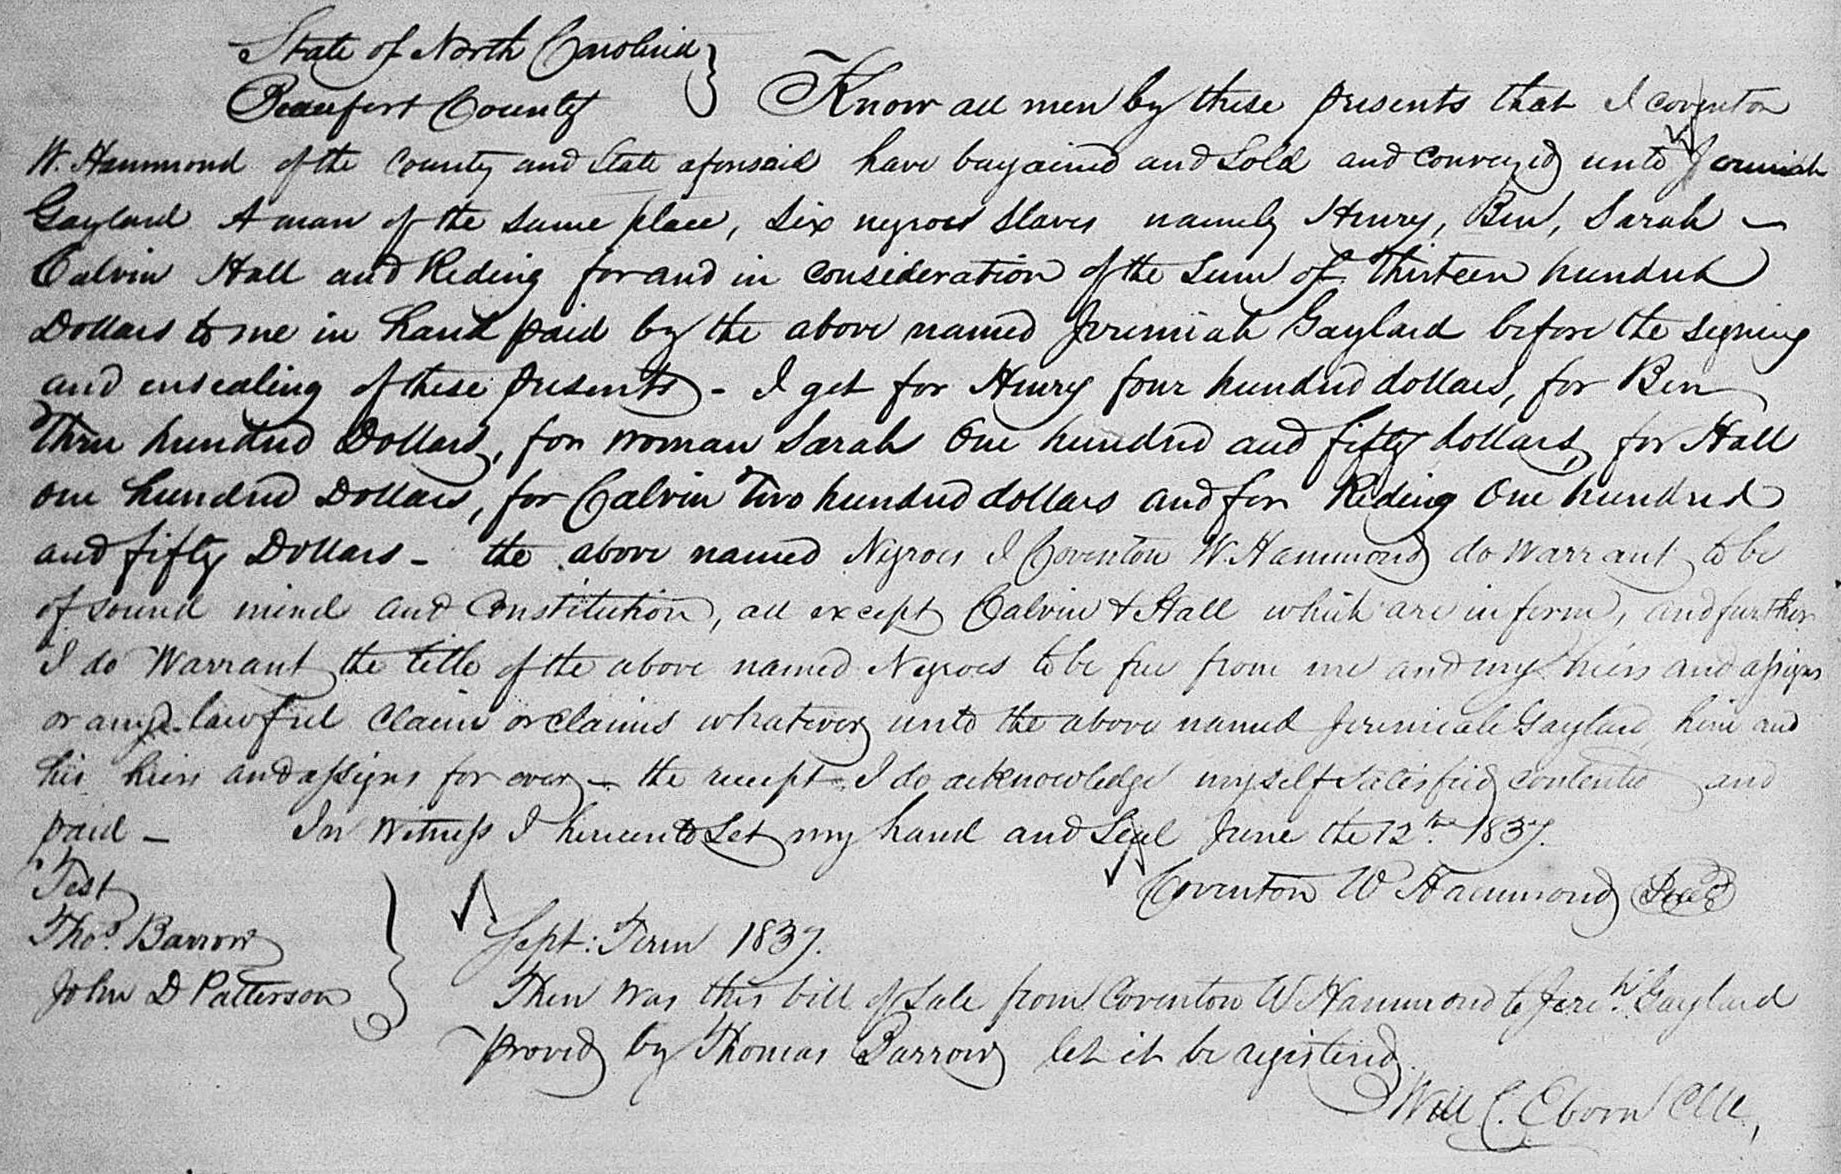 State of North Carolina
Beaufort County } Know all men by these presents that I Coventon
W. Hammond of the County and State aforesaid have bargained and Sold and Conveyed unto Jeremiah
Gaylard A man of the same place, Six negroes Slaves namely Henry, Ben, Sarah –
Calvin Hall and Reding for and in consideration of the sum of Thirteen hundred
Dollars to me in hand paid by the above named Jeremiah Gaylard before the signing
and ensealing of these presents - I get for Henry four hundred dollars, for Ben
Three hundred Dollars, for woman Sarah One hundred and fifty dollars, for Hall
One hundred Dollars, for Calvin Two hundred dollars and for Reding One hundred
and fifty Dollars - the above named Negroes I Coventon W. Hammond do warrant to be
of sound mind and Constitution, all except Calvin & Hall which are inform, and further
I do Warrant the title of the above named Negroes to be free from me and my heirs and assigns
or any lawful Claim or Claims whatever unto the above named Jeremiah Gaylard, him and
his heirs and assigns for ever – the receipt I do acknowledge myself satisfied contented and
paid – In Witness I hereunto Set my hand and Seal June the 12th 1837.
Test Coventon W Hammond (Seal)
Thos. Barrow Sept: Term 1837.
John D Patterson } Then was this bill of Sale from Coventon W Hammond to Jereh. Gaylard
proved by Thomas Barrow let it be registered.
Will C. Eborn Clk,